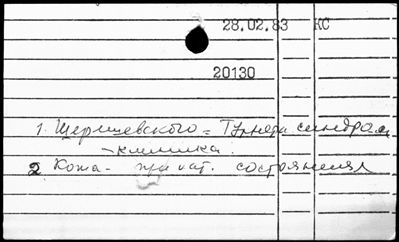 28.02.83 КС
20130
1. Шерешевского = Тернера синдром
- клиника.
2. Кожа - при пат. состояниях